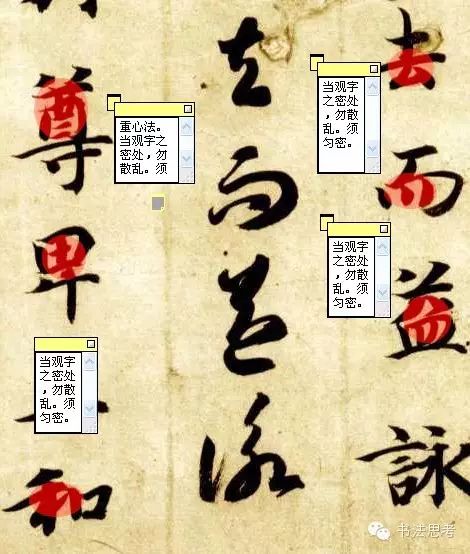 去而益詠
当观字
之密处
，勿散
乱。须
匀密。
当观字
之密处
，勿散
乱。须
匀密。
去而益詠
重心法。
当观字之
密处，勿
散乱。须
尊卑
和
当观字
之密处
，勿散
乱。须
匀密。
书法思考